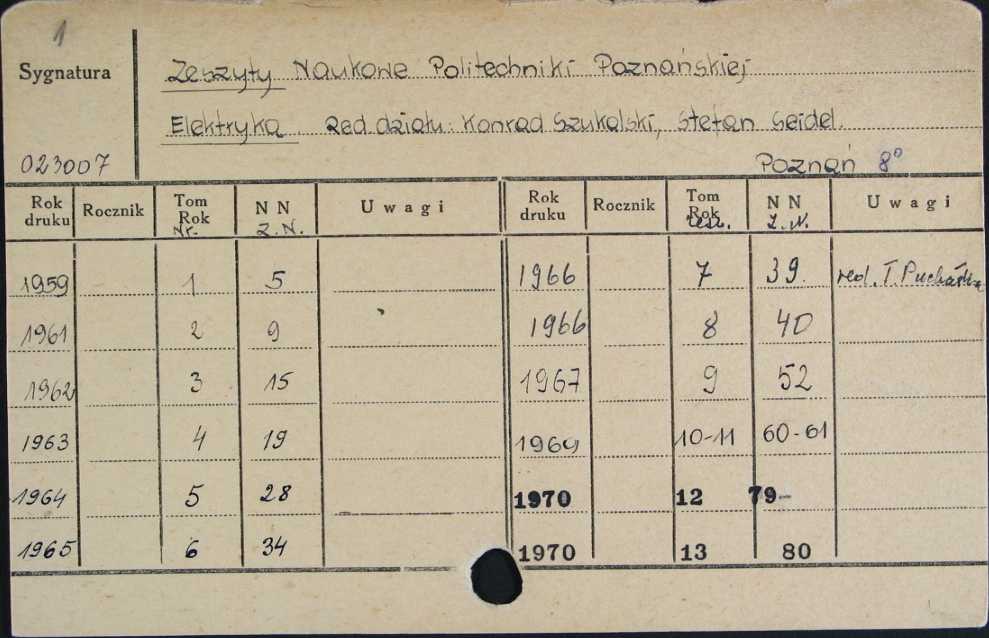 1
Sygnatura
Zeszyty Naukowe Politechniki Poznańskiej
Elektryka. Red działu: Konrad Szukalski, Stefan Seidel.
023007
Poznań 8°
Rok druku Rocznik Tom Rok Nr. N N Z. N. Uwagi Rok druku Rocznik Tom Rok Zesz. N N Z. N. Uwagi
1959 1 5 1966 7 39. red. T. Puchałka
1961 2 9 1966 8 40
1962 3 15 1967 9 52
1963 4 19 1969 10-11 60-61
1964 5 28 1970 12 79-
1965 6 34 1970 13 80